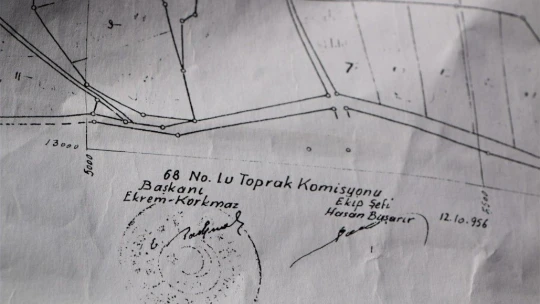 9
11
7
13000
5000
5500
68 No. lu Toprak Komisyonu
Başkanı
Ekrem-Korkmaz
Ekip Şefi
Hasan Başarır
12.10.956